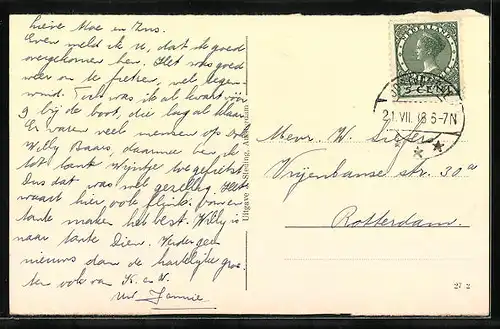 Lieve Moe en Zus.
Even meld ik U, dat ik goed
overgekomen ben. Het was goed
weer om te fietsen, veel tegen-
wind. Toch was ik al kwart vóór
9 bij de boot, die lag al klaar
Er waren veel menschen op ook
Willy Baars, daarmee ben ik
tot tante Wijntje toe gefietst.
Dus dat was wel gezellig. Het
waait hier ook flink. Oom en
tante maken het best. Willy is
naar tante Dien. Verder geen
nieuws dan de hartelijke groe-
ten ook van K. en W.
Uw Jannie.
Uitgave Amsterdam
NEDERLAND
5 CENT
21.VII.8 5-7N
Mevr. W.
Vrijenbanse str. 30a
Rotterdam.
27 2